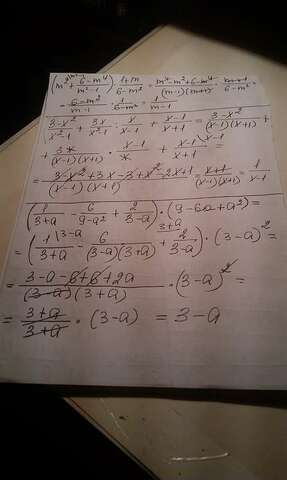 (m² + (6-m⁴)/(m²-1)) · (1+m)/(6-m²) = (m⁴-m²+6-m⁴)/((m-1)(m+1)) · (m+1)/(6-m²) =
= (6-m²)/(m-1) · 1/(6-m²) = 1/(m-1)
(3-x²)/(x²-1) + 3x/(x²-1) · (x-1)/x + (x-1)/(x+1) = (3-x²)/((x-1)(x+1)) +
+ 3x/((x-1)(x+1)) · (x-1)/x + (x-1)/(x+1) =
= (3-x²+3x-3+x²-2x+1)/((x-1)(x+1)) = (x+1)/((x-1)(x+1)) = 1/(x-1)
(1/(3+a) - 6/(9-a²) + 2/(3-a)) · (9-6a+a²) =
= (1/(3+a) - 6/((3-a)(3+a)) + 2/(3-a)) · (3-a)² =
= (3-a-6+6+2a)/((3-a)(3+a)) · (3-a)² =
= (3+a)/(3+a) · (3-a) = 3-a